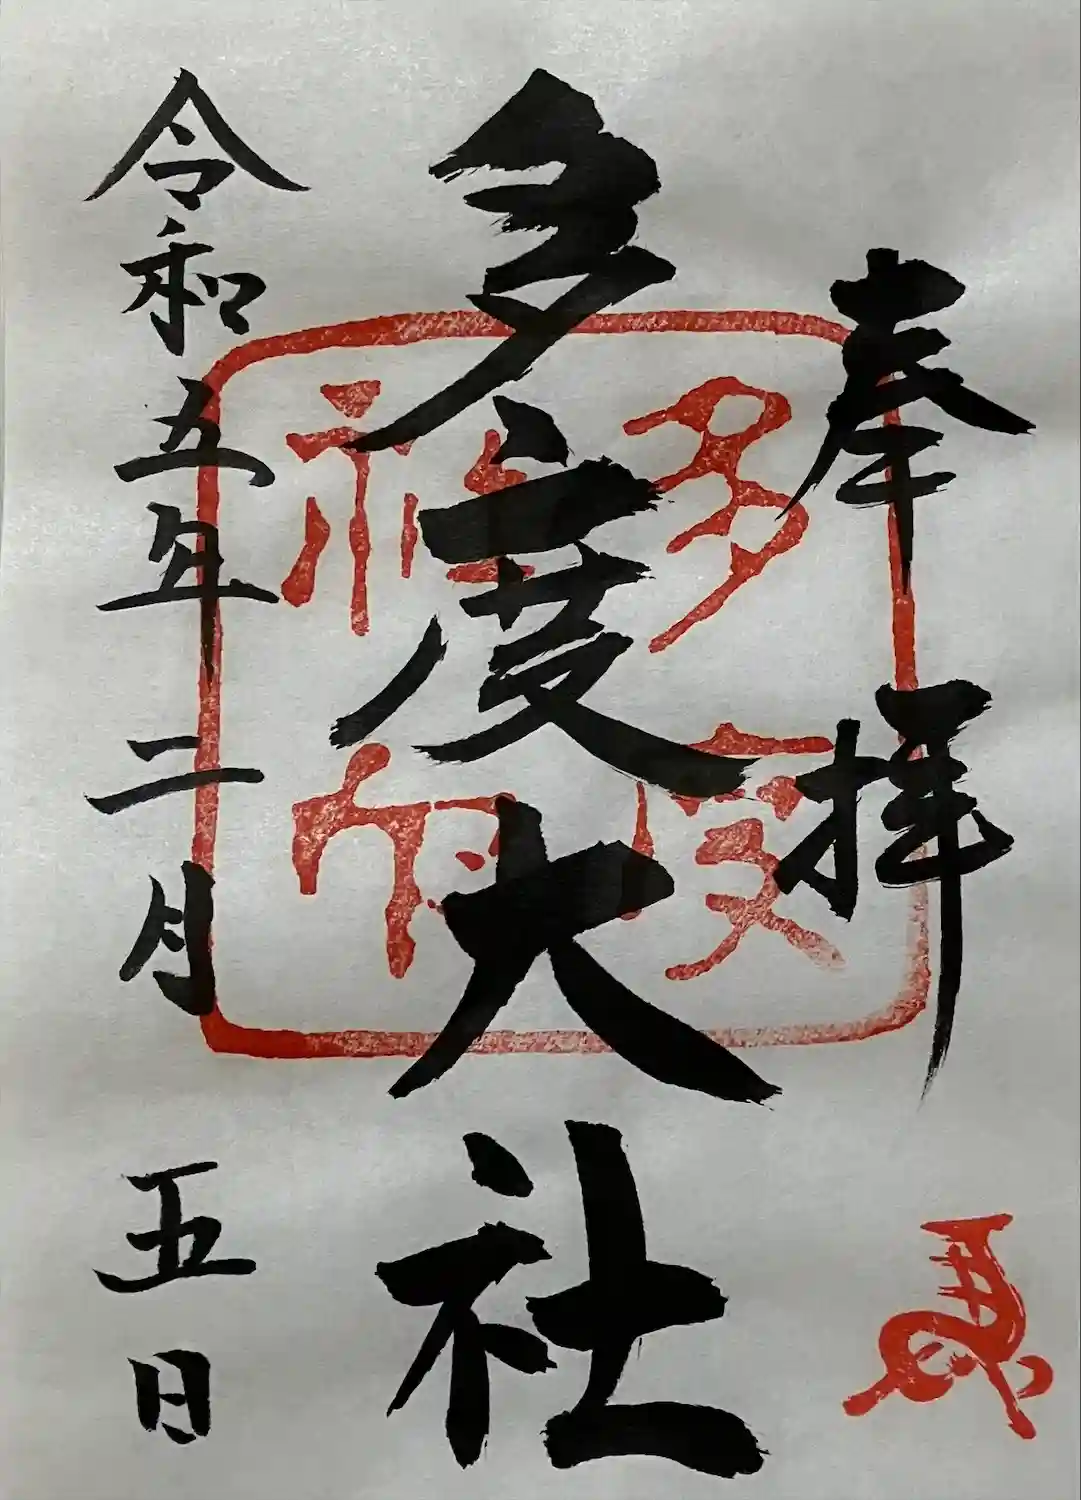 奉拝
多度大社
多度
神社
令和五年二月五日